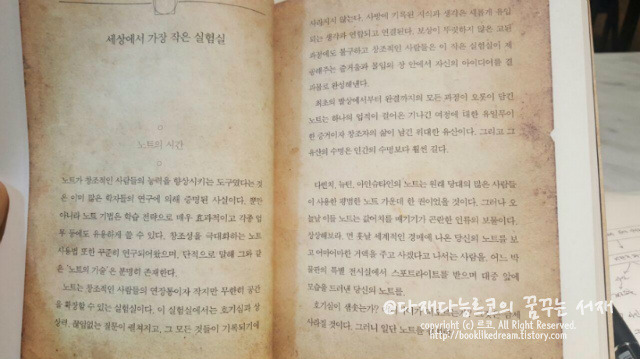 세상에서 가장 작은 실험실
노트의 시간
노트가 창조적인 사람들의 능력을 향상시키는 도구였다는 것
은 이미 많은 학자들의 연구에 의해 증명된 사실이다. 뿐만
아니라 노트 기법은 학습 전략으로 매우 효과적이고 각종 업
무 등에도 유용하게 쓸 수 있다. 창조성을 극대화하는 노트
사용법 또한 꾸준히 연구되어왔으며, 단적으로 말해 그와 같
은 '노트의 기술'은 분명히 존재한다.
노트는 창조적인 사람들의 연장통이자 작지만 무한히 공간
을 확장할 수 있는 실험실이다. 이 실험실에서는 호기심과 상
상력, 끊임없는 질문이 펼쳐지고, 그 모든 것들이 기록되기에
사라지지 않는다. 사방에 기록된 지식과 생각은 새롭게 유입
되는 생각과 연합되고 연결된다. 보상이 뚜렷하지 않은 고된
과정에도 불구하고 창조적인 사람들은 이 작은 실험실이 제
공해주는 즐거움과 몰입의 상 안에서 자신의 아이디어를 결
과물로 완성해낸다.
최초의 발상에서부터 완결까지의 모든 과정이 오롯이 담긴
노트는 하나의 업적이 걸어온 기나긴 여정에 대한 유일무이
한 증거이자 창조자의 삶이 남긴 위대한 유산이다. 그리고 그
유산의 수명은 인간의 수명보다 훨씬 길다.
다빈치, 뉴턴, 아인슈타인의 노트는 원래 당대의 많은 사람들
이 사용한 평범한 노트 가운데 한 권이었을 것이다. 그러나 오
늘날 이들 노트는 값어치를 매기기가 곤란한 인류의 보물이다.
상상해보라. 먼 훗날 세계적인 경매에 나온 당신의 노트를 보
고 어마어마한 거액을 주고 사겠다고 나서는 사람을. 어느 박
물관의 특별 전시실에서 스포트라이트를 받으며 대중 앞에
모습을 드러낸 당신의 노트를.
호기심이 샘솟는가?
사라질 것이다. 그러니 일단 노트를
@다재다능르코의 꿈꾸는 서재
copyright (c) 르코. All Right Reserved.
http://booklikedream.tistory.com